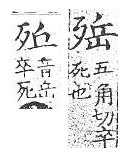 五角切卒
死也
音岳
卒死